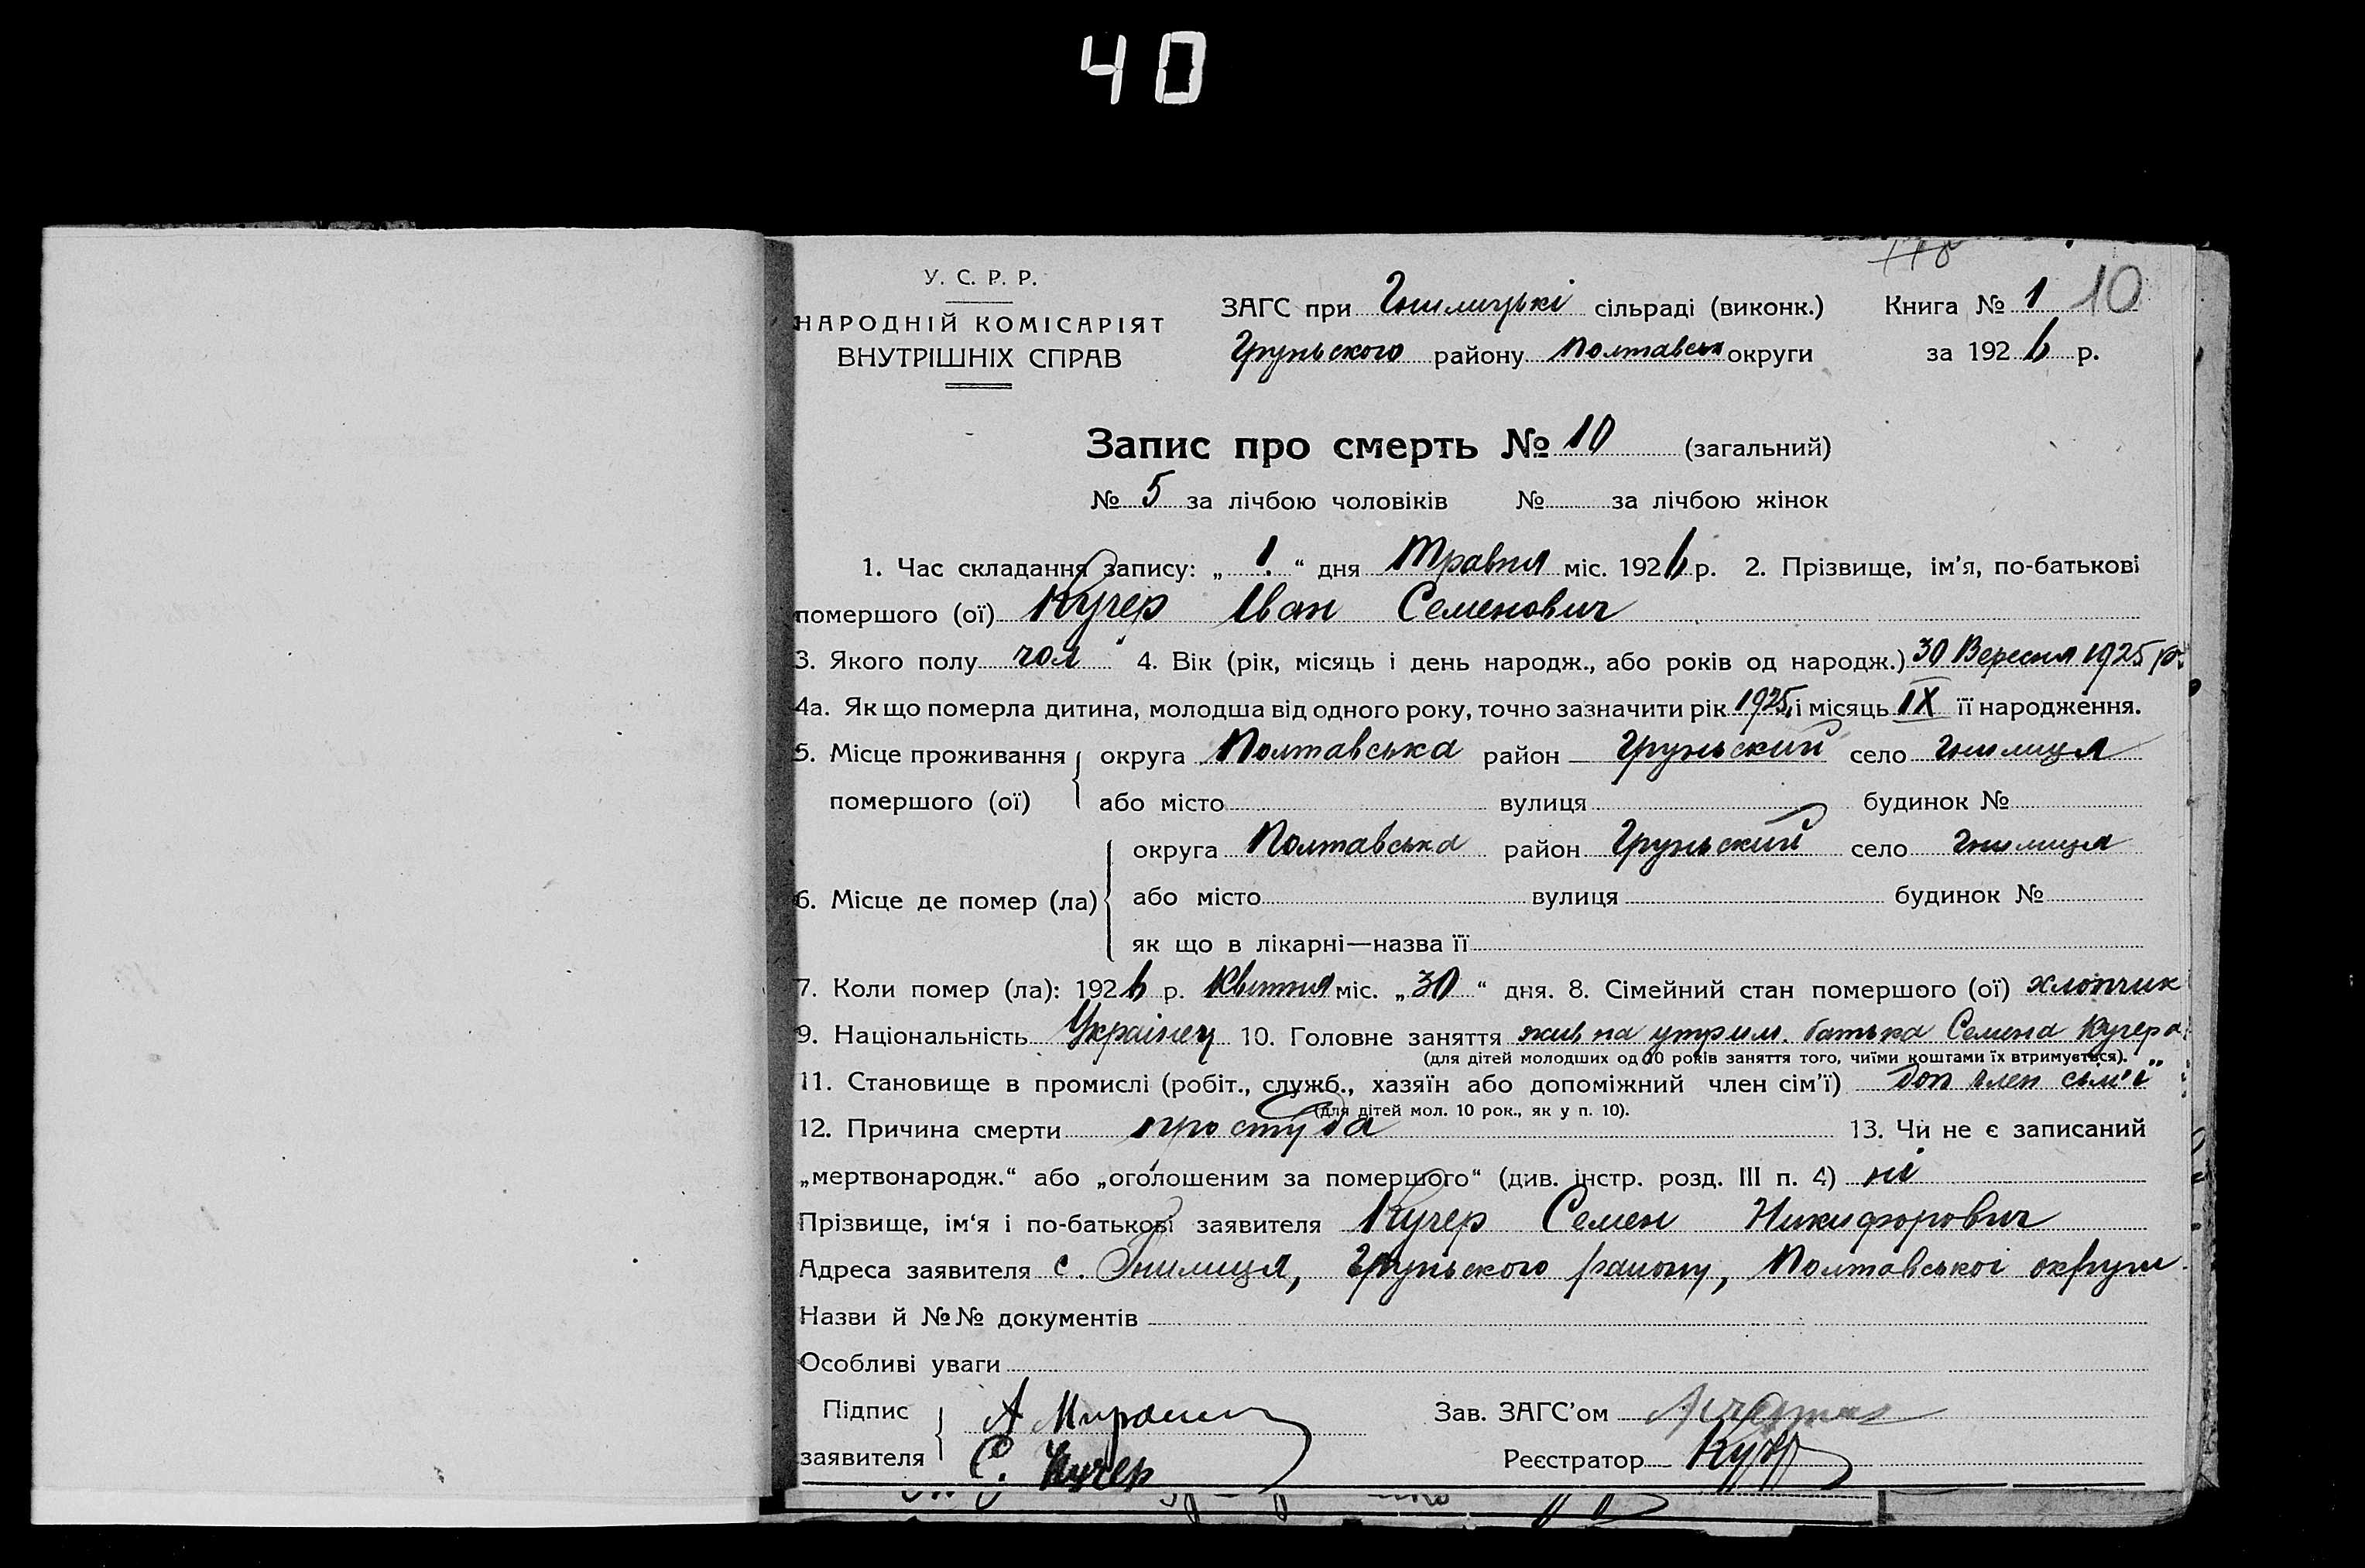 40
У. С. Р. Р.
НАРОДНІЙ КОМІСАРІЯТ
ВНУТРІШНІХ СПРАВ
ЗАГС при Гнилицькі сільраді (виконк.) Книга № 1 10
Груньского району Полтавськ округи за 1926 р.
Запис про смерть № 10 (загальний)
№ 5 за лічбою чоловіків № за лічбою жінок
1. Час складання запису: „1.“ дня Травня міс. 1926 р. 2. Прізвище, ім’я, по-батькові
помершого (ої) Кучер Іван Семенович
3. Якого полу чол 4. Вік (рік, місяць і день народж., або років од народж.) 30 Вересня 1925 р.
4а. Як що померла дитина, молодша від одного року, точно зазначити рік 1925, і місяць IX її народження.
5. Місце проживання округа Полтавська район Груньский село Гнилиця
помершого (ої) або місто вулиця будинок №
округа Полтавська район Груньский село Гнилиця
6. Місце де помер (ла) або місто вулиця будинок №
як що в лікарні—назва її
7. Коли помер (ла): 1926 р. Квітня міс. „30“ дня. 8. Сімейний стан помершого (ої) хлопчик
9. Національність Українец 10. Головне заняття жив на утрим. батька Семена Кучера
(для дітей молодших од 10 років заняття того, чиїми коштами їх втримується).
11. Становище в промислі (робіт., служб., хазяїн або допоміжний член сім’ї) доп член сім'ї
(для дітей мол. 10 рок., як у п. 10).
12. Причина смерти простуда 13. Чи не є записаний
„мертвонародж.“ або „оголошеним за помершого“ (див. інстр. розд. III п. 4) ні
Прізвище, ім‘я і по-батькові заявителя Кучер Семен Никифорович
Адреса заявителя с. Гнилиця, Груньского району, Полтавської округи
Назви й №№ документів
Особливі уваги
Підпис Зав. ЗАГС’ом
заявителя С. Кучер Реєстратор